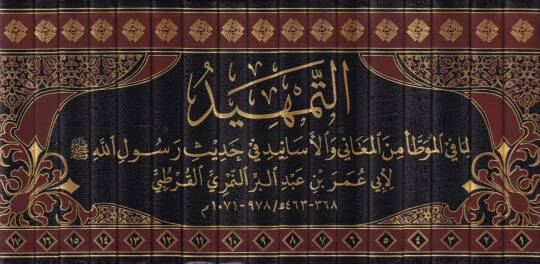 التمهيد
لما في الموطأ من المعاني والأسانيد في حديث رسول الله ﷺ
لأبي عمر بن عبد البر النمري القرطبي
٣٦٨-٤٦٣هـ/٩٧٨-١٠٧١م
١ ٢ ٣ ٤ ٥ ٦ ٧ ٨ ٩ ١٠ ١١ ١٢ ١٣ ١٤ ١٥ ١٦ ١٧